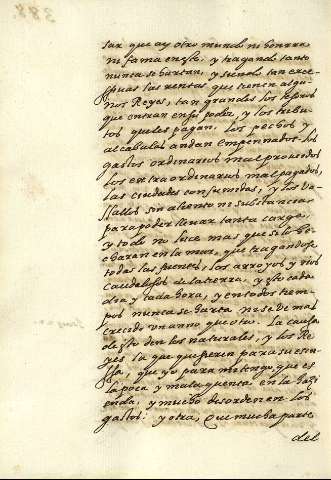 sar que ay otro mundo ni honrra
ni fama en este, y tragando tanto
nunca se hartan, y siendo tan exce-
sivas las rentas que tienen algu-
nos Reyes, tan grandes los
que entran en su poder, y los tribu-
tos que les pagan, los pechos y
alcabalas andan empeñados los
gastos ordinarios mal proveidos
los extraordinarios mal pagados,
las ciudades consumidas, y los va-
sallos sin aliento ni substancia
para poder llevar tanta carga,
y todo no luce mas que si lo he-
charan en la mar, que tragandose
todas las fuentes, los arroyos y rios
caudalosos de la tierra, y esto cada
dia y cada hora, y en todos tiem-
pos nunca se harta ni se ve mas
crecido un año que otro. La causa
de esto den los naturales, y los Re-
yes la que quisieren para su escu-
sa, que yo para mi tengo, que es
la poca y mala quenta en la hazi
enda, y mucho desorden en los
gastos: y otra, que mucha parte
del